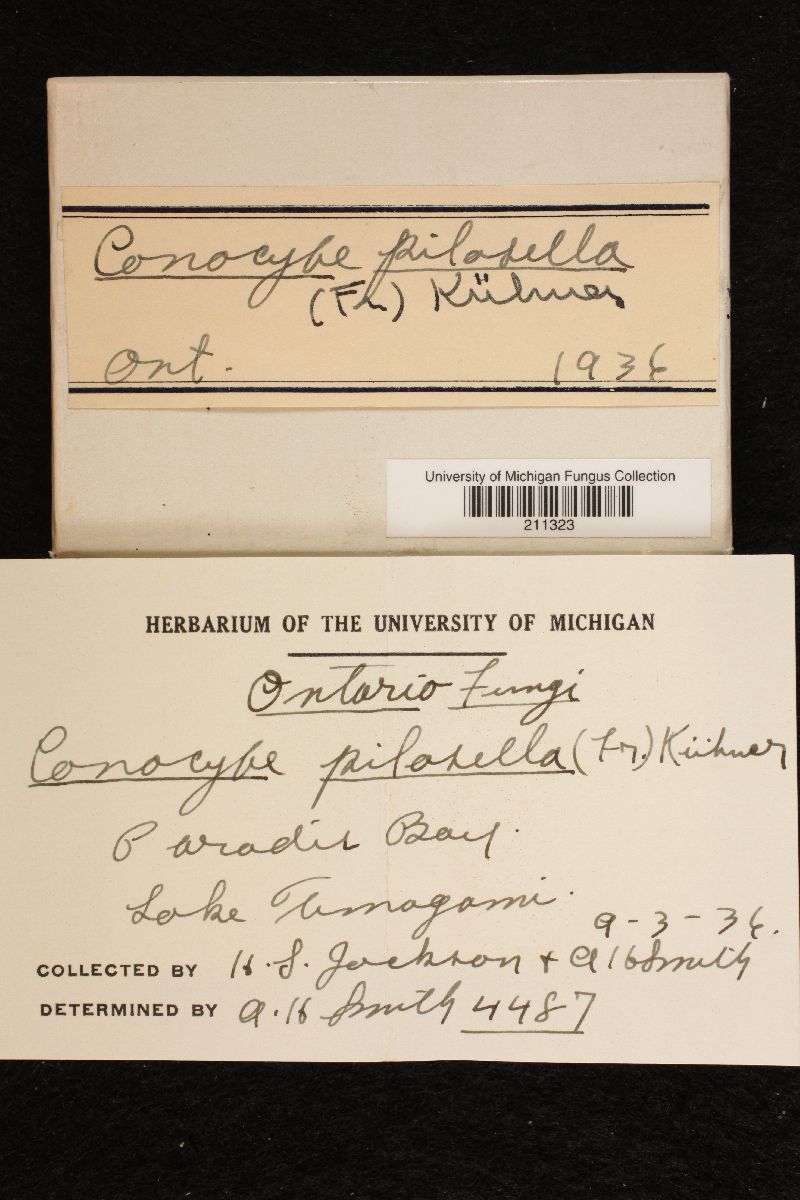 Conocybe pilosella
(Fr) Kühner
Ont. 1936
University of Michigan Fungus Collection
211323
HERBARIUM OF THE UNIVERSITY OF MICHIGAN
Ontario Fungi
Conocybe pilosella (Fr.) Kühner
Paradis Bay.
Lake Timagami.
9-3-36.
COLLECTED BY H. S. Jackson + A H Smith
DETERMINED BY A. H Smith 4487